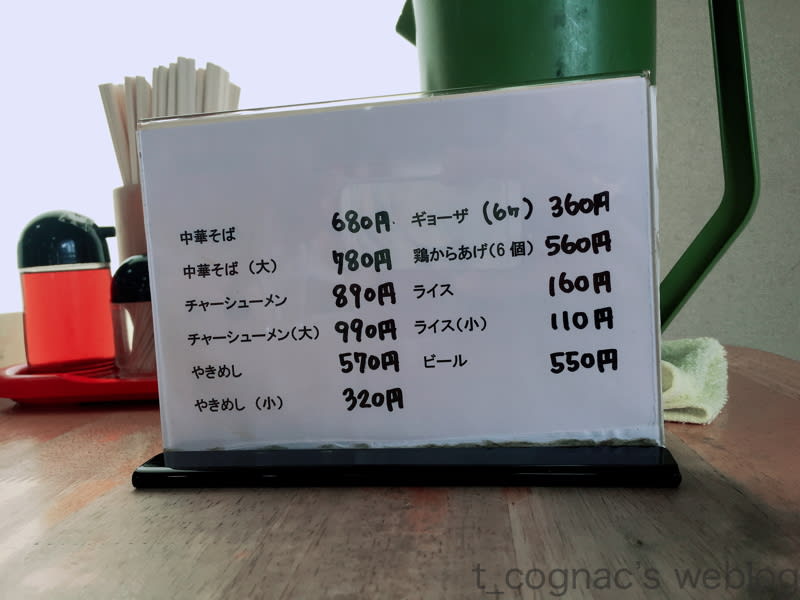 中華そば 680円
中華そば（大） 780円
チャーシューメン 890円
チャーシューメン（大） 990円
やきめし 570円
やきめし（小） 320円
ギョーザ（6ヶ） 360円
鶏からあげ（6個） 560円
ライス 160円
ライス（小） 110円
ビール 550円
t_cognac's weblog